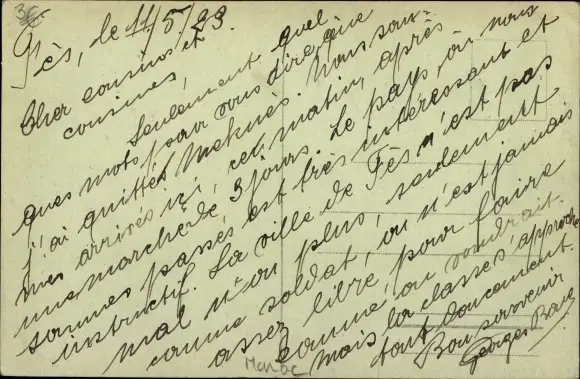 36
Fès, le 11/5/23.
Cher cousins et
cousines,
Seulement quel
ques mots pour vous dire que
j'ai quitté Meknès. Nous som-
mes arrivés ici, ce matin, après
une marche de 3 jours. Le pays, où nous
sommes passés est très intéressant et
instructif. La ville de Fès n'est pas
mal non plus, seulement
comme soldat, on n'est jamais
assez libre, pour faire
comme on voudrait.
Mais la classe s'approche
tout doucement.
Bon souvenir
Georges
Maroc